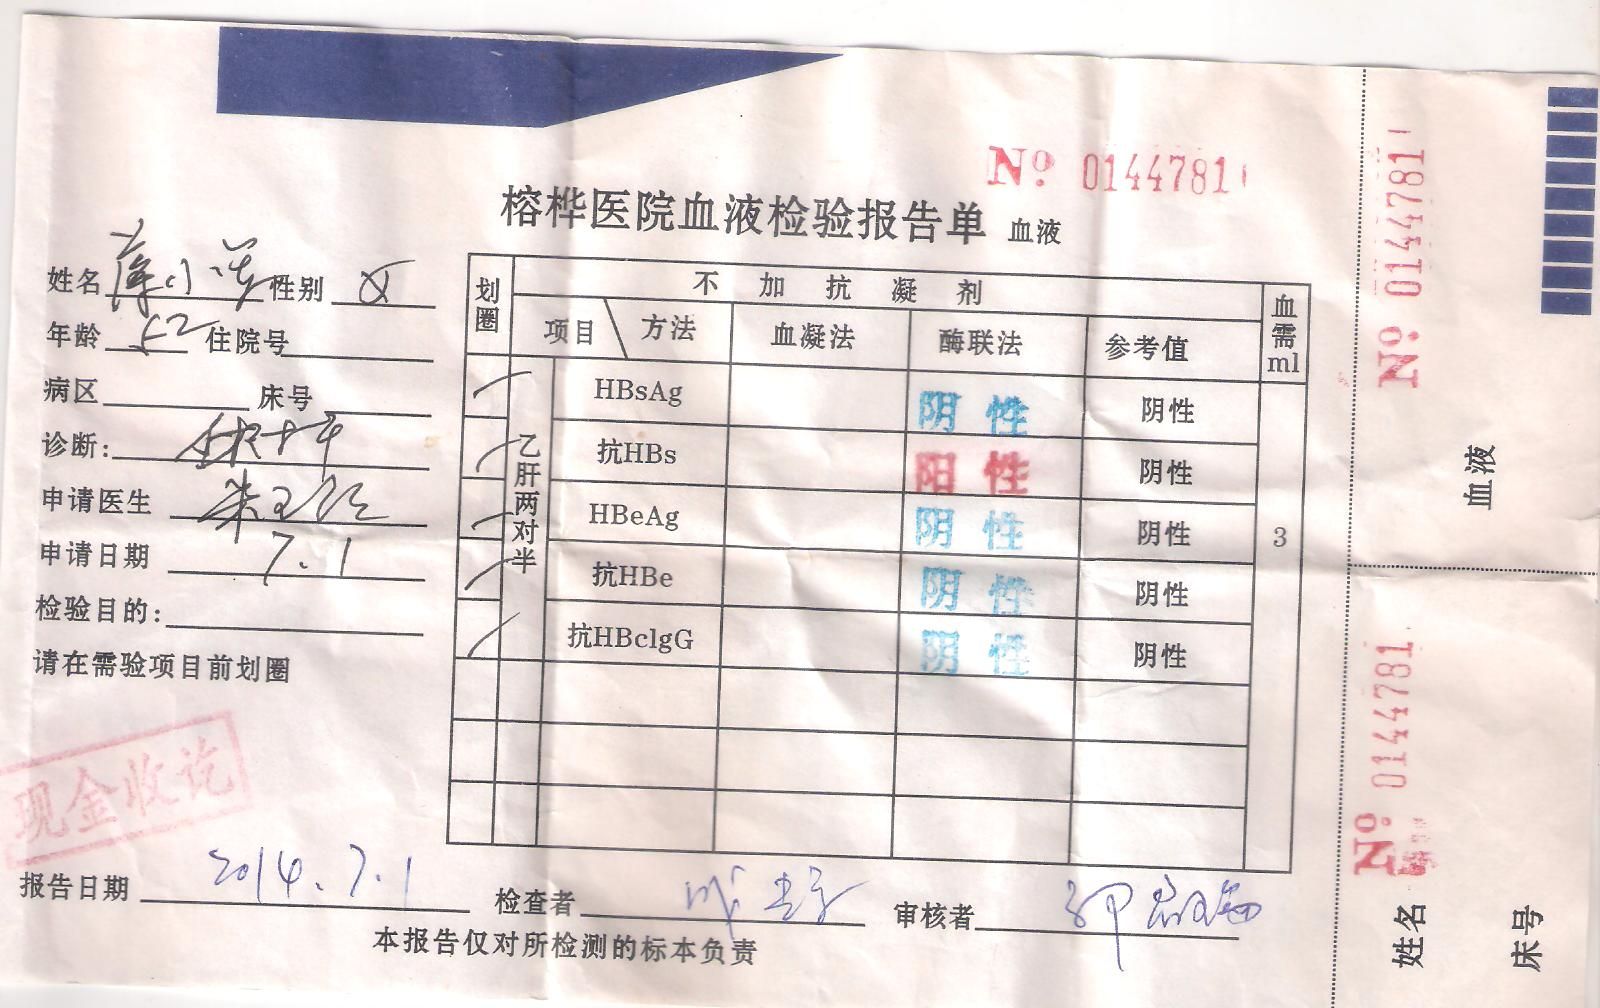 No. 0144781
榕桦医院血液检验报告单 血液
姓名 性别 女
年龄 52 住院号
病区 床号
诊断:
申请医生
申请日期 7.1
检验目的:
请在需验项目前划圈
划圈 不加抗凝剂 血需ml
项目 方法 血凝法 酶联法 参考值
乙肝两对半
HBsAg 阴性 阴性
抗HBs 阳性 阴性
HBeAg 阴性 阴性
抗HBe 阴性 阴性
抗HBclgG 阴性 阴性
3
现金收讫
报告日期 2014.7.1 检查者 审核者
本报告仅对所检测的标本负责
No. 0144781
血液
No. 0144781
姓名
床号